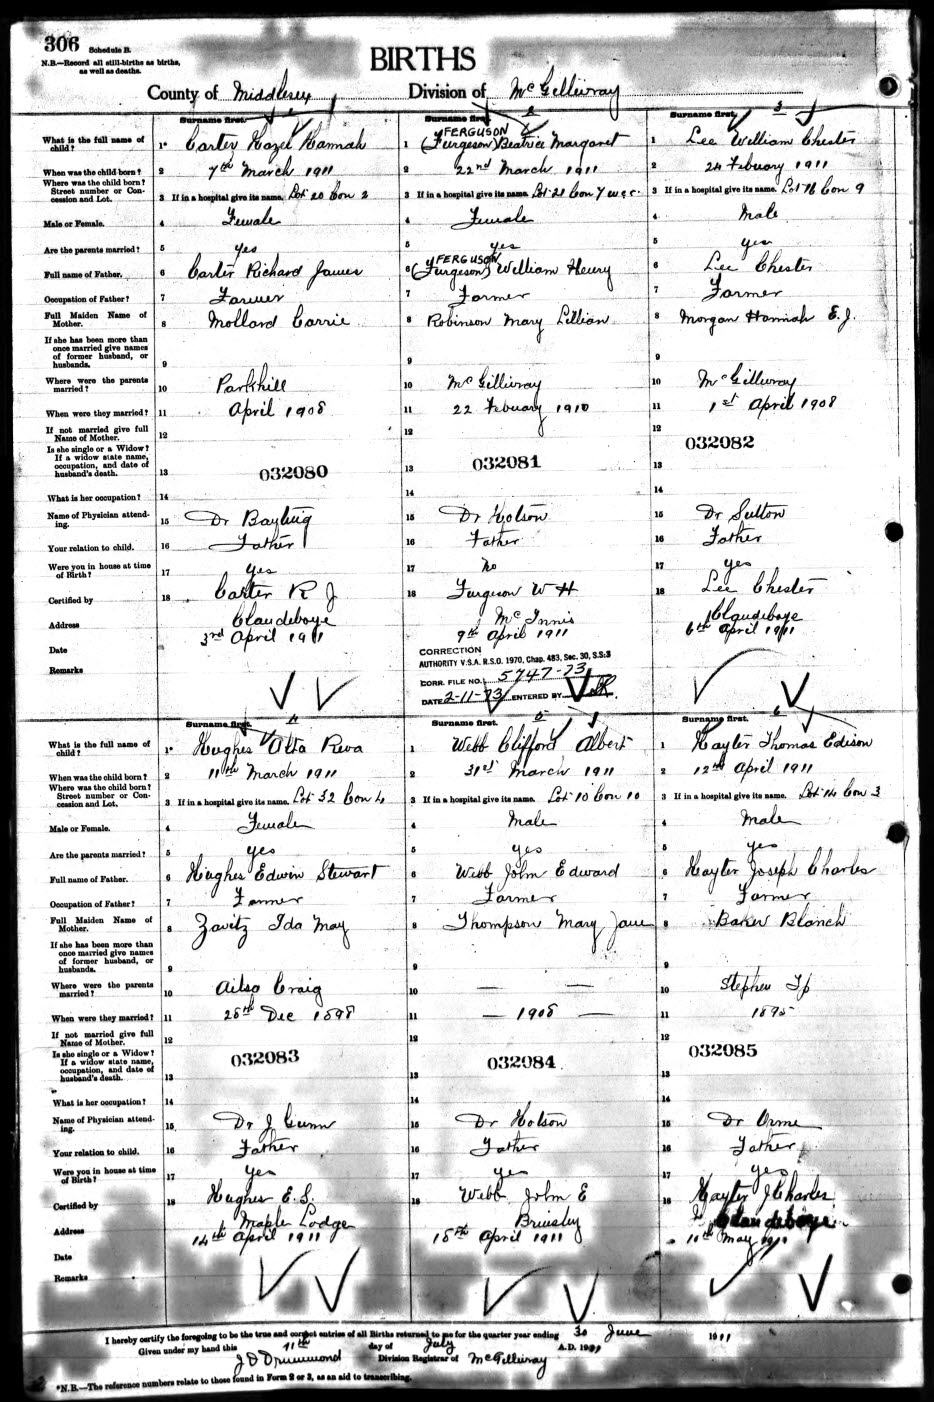 306 Schedule B.
N.B.—Record all still-births as births, as well as deaths.
BIRTHS
County of Middlesex Division of McGillivray
1 2 3
Surname first. Surname first. Surname first.
What is the full name of child? 1* Carter Hazel Hannah 1 FERGUSON (Furgeson) Beatrice Margaret 1 Lee William Chester
When was the child born? 2 7th March 1911 2 22nd March 1911 2 24 Febuary 1911
Where was the child born? Street number or Concession and Lot. 3 If in a hospital give its name. Lot 20 Con 2 3 If in a hospital give its name. Lot 21 Con 7 3 If in a hospital give its name. Lot 16 Con 9
Male or Female. 4 Female 4 Female 4 Male
Are the parents married? 5 yes 5 yes 5 yes
Full name of Father. 6 Carter Richard James 6 FERGUSON (Furgeson) William Henry 6 Lee Chester
Occupation of Father? 7 Farmer 7 Farmer 7 Farmer
Full Maiden Name of Mother. 8 Mollard Carrie 8 Robinson Mary Lillian 8 Morgan Hannah E. J.
If she has been more than once married give names of former husband, or husbands. 9 9 9
Where were the parents married? 10 Parkhill 10 McGillivray 10 McGillivray
When were they married? 11 April 1908 11 22 Febuary 1910 11 1st April 1908
If not married give full Name of Mother. 12 12 12
Is she single or a Widow? If a widow state name, occupation, and date of husband's death. 13 032080 13 032081 13 032082
What is her occupation? 14 14 14
Name of Physician attending. 15 Dr 15 Dr Hotson 15 Dr Sutton
Your relation to child. 16 Father 16 Father 16 Father
Were you in house at time of Birth? 17 yes 17 No 17 yes
Certified by 18 Carter R J 18 Furgeson W H 18 Lee Chester
Address Claudeboye McInnis Claudeboye
Date 3rd April 1911 9th April 1911 6th April 1911
Remarks
CORRECTION
AUTHORITY V.S.A. R.S.O. 1970, Chap. 483, Sec. 30, S.S:3
CORR. FILE NO. 5747-73
DATE 2-11-73 ENTERED BY
4 5 6
Surname first. Surname first. Surname first.
What is the full name of child? 1* Hughes Alta Reva 1 Webb Clifford Albert 1 Hayter Thomas Edison
When was the child born? 2 11th March 1911 2 31st March 1911 2 12th April 1911
Where was the child born? Street number or Concession and Lot. 3 If in a hospital give its name. Lot 32 Con 4 3 If in a hospital give its name. Lot 10 Con 10 3 If in a hospital give its name. Lot 14 Con 3
Male or Female. 4 Female 4 Male 4 Male
Are the parents married? 5 yes 5 yes 5 yes
Full name of Father. 6 Hughes Edwin Stewart 6 Webb John Edward 6 Hayter Joseph Charles
Occupation of Father? 7 Farmer 7 Farmer 7 Farmer
Full Maiden Name of Mother. 8 Zavitz Ida May 8 Thompson Mary Jane 8 Baker Blanch
If she has been more than once married give names of former husband, or husbands. 9 9 9
Where were the parents married? 10 Ailsa Craig 10 — — 10 Stephen Tp
When were they married? 11 28th Dec 1898 11 — 1908 — 11 1895
If not married give full Name of Mother. 12 12 12
Is she single or a Widow? If a widow state name, occupation, and date of husband's death. 13 032083 13 032084 13 032085
What is her occupation? 14 14 14
Name of Physician attending. 15 Dr J Gunn 15 Dr Hotson 15 Dr Orme
Your relation to child. 16 Father 16 Father 16 Father
Were you in house at time of Birth? 17 yes 17 yes 17 yes
Certified by 18 Hughes E. S. 18 Webb John E 18 Hayter J Charles
Address Maple Lodge Brinsley Claudeboye
Date 14th April 1911 18th April 1911 11th May 1911
Remarks
I hereby certify the foregoing to be the true and correct entries of all Births returned to me for the quarter year ending 30 June 1911
Given under my hand this 11th day of July A.D. 1911
J D Drummond Division Registrar of McGillivray
*N.B.—The reference numbers relate to those found in Form 2 or 3, as an aid to transcribing.